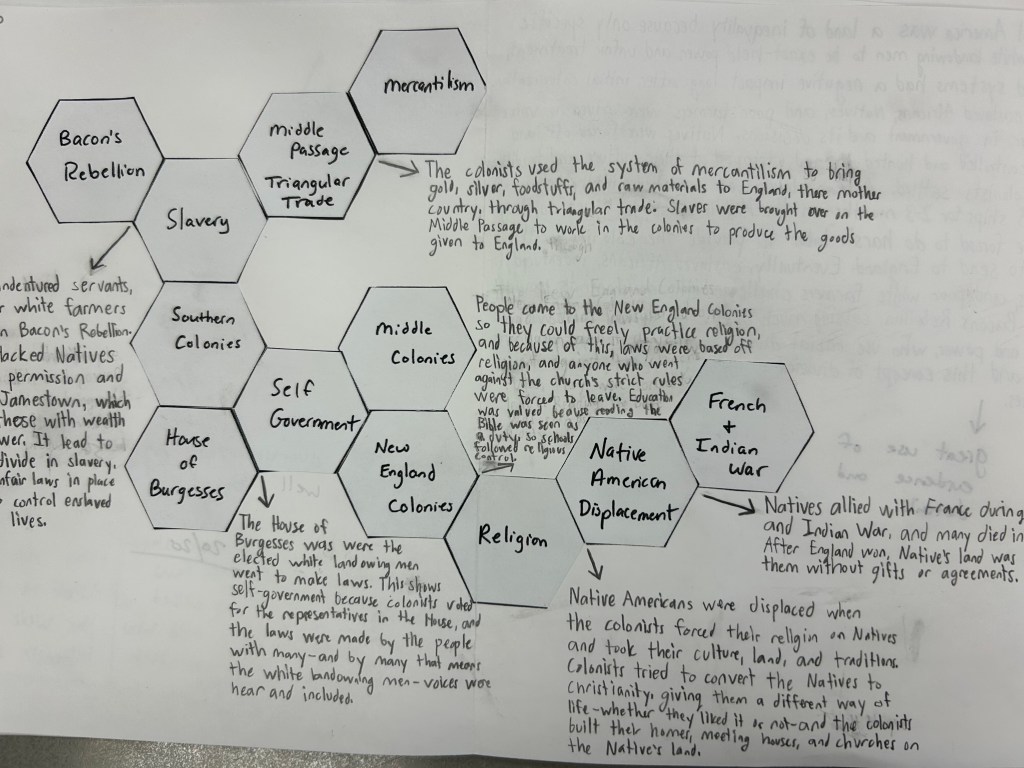 mercantilism
Bacon's
Rebellion
Middle
Passage
Triangular
Trade
Slavery
The colonists used the system of mercantilism to bring
gold, silver, foodstuffs, and raw materials to England, there mother
country, through triangular trade. Slaves were brought over on the
Middle Passage to work in the colonies to produce the goods
given to England.
ndentured servants,
r white farmers
n Bacon's Rebellion.
lacked Natives
permission and
Jamestown, which
those with wealth
wer. It lead to
divide in slavery.
nfair laws in place
o control enslaved
lives.
Southern
Colonies
Middle
Colonies
People came to the New England colonies
so they could freely practice religion,
and because of this, laws were based off
religion, and anyone who went
against the church's strict rules
were forced to leave. Education
was valued because reading the
Bible was seen as
a duty, so schools
followed religious
control.
Self
Government
House
of
Burgesses
New
England
Colonies
Religion
Native
American
Displacement
French
+
Indian
War
The House of
Burgesses was were the
elected white landowing men
went to make laws. This shows
self-government because colonists voted
for the representatives in the House, and
the laws were made by the people
with many-and by many that means
the white landowning men-voices were
hear and included.
Natives allied with France during
and Indian War, and many died in
After England won, Native's land was
them without gifts or agreements.
Native Americans were displaced when
the colonists forced their religion on Natives
and took their culture, land, and traditions.
Colonists tried to convert the Natives to
Christianity, giving them a different way of
life-whether they liked it or not-and the colonists
built their homes, meeting houses, and churches on
the Native's land.